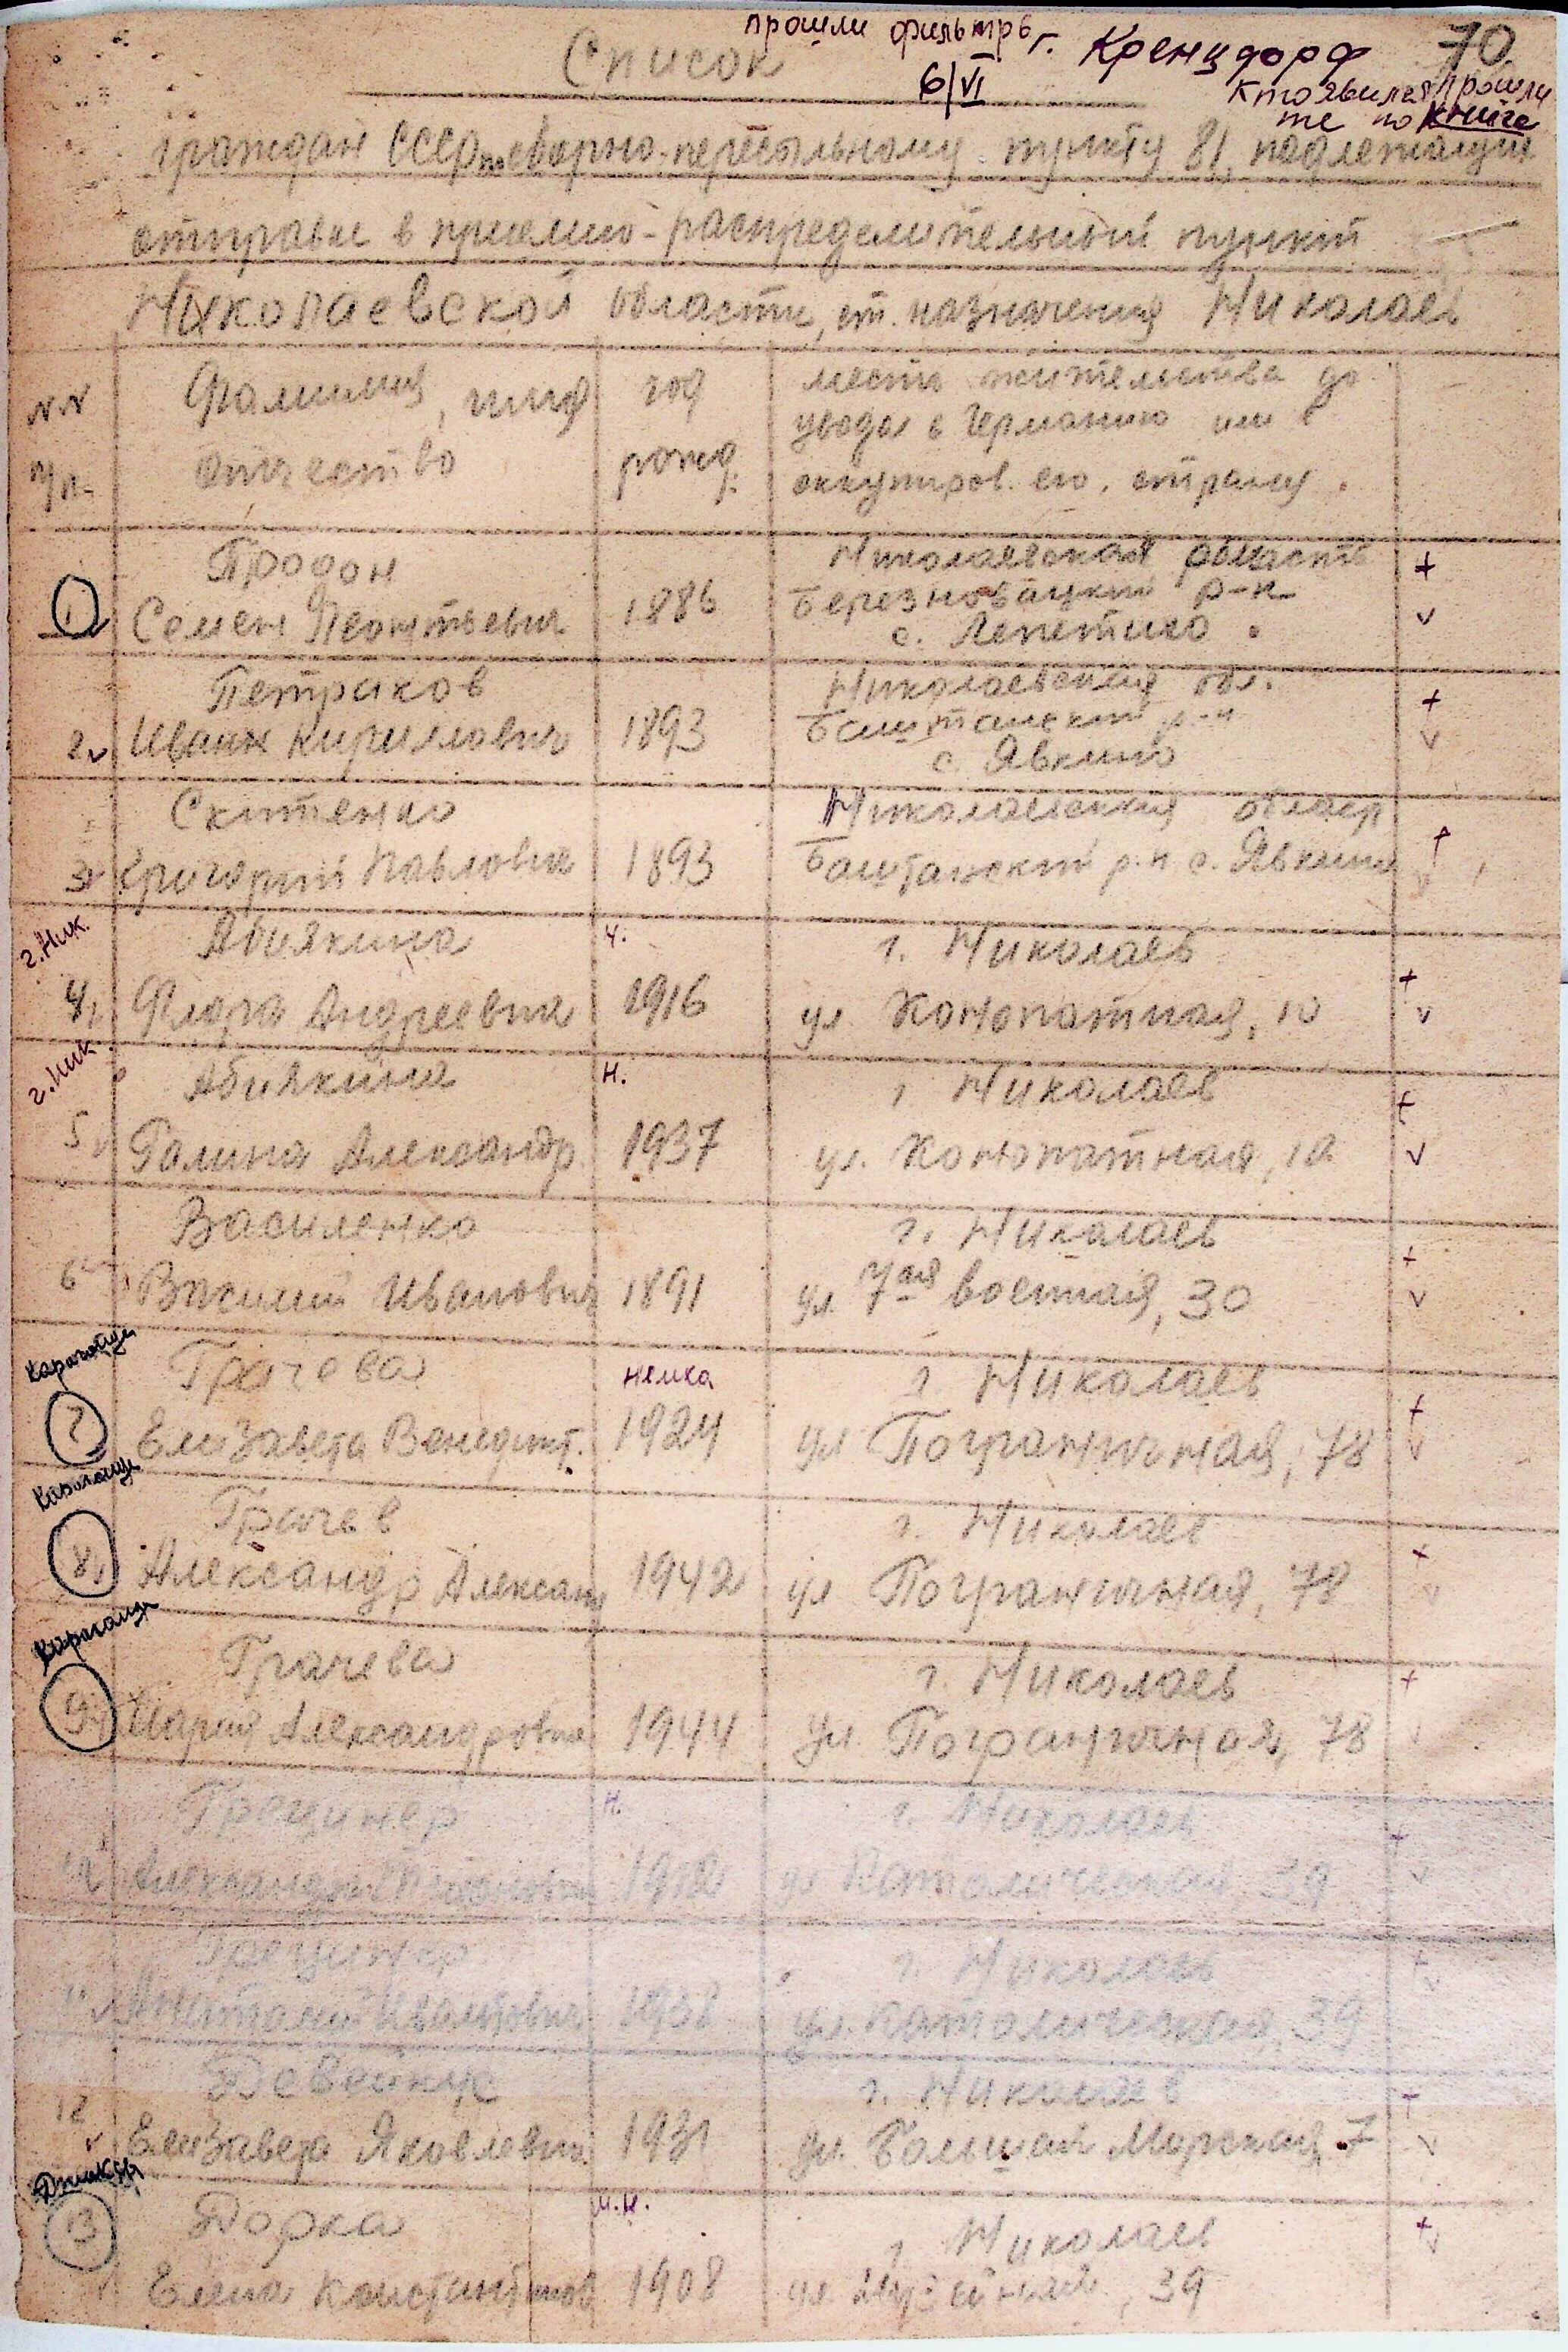 прошли фильтр г. Кренцдорф 70
Список
6/VI
Кто явился прошли
те по книге
граждан СССР по сборно-пересыльному пункту 81, подлежащих
отправке в приемно-распределительный пункт
Николаевской области, ст. назначения Николаев
N.N Фамилия, имя год место жительства до
увода в Германию или в
п/п. отчество рожд. оккупиров. ею, страны.
Продон Николаевская область +
1 Семен Леонтьевич 1886 Березновацкий р-н v
с. Лепетихо
Петриков Николаевская обл. +
2 Иван Кириллович 1893 Баштанский р-н v
с. Явкино
Скитенко Николаевская
3 Григорий Павлович 1893 Баштанский р-н с. Явкино
г. Ник. Абиякина г. Николаев +
4 Флора Андреевна 1916 ул. Конопатная, 10 v
г. Ник. Абиякина н. г. Николаев +
5 Галина Александр. 1937 ул. Конопатная, 10 v
Василенко г. Николаев +
6 Василий Иванович 1891 ул. 7ая военная, 30 v
Караганда Грачева немка г. Николаев +
7 Елизавета Венедикт. 1924 ул. Пограничная, 78 v
Караганда Грачев г. Николаев +
8 Александр Алексан 1942 ул. Пограничная, 78 v
Караганда Грачева г. Николаев +
9 Мария Александровна 1944 ул. Пограничная, 78
Грецингер н. г. Николаев +
ул. Католическая 39 v
Грецингер г. Николаев +
Анатолий Иванович ул. Католическая, 39 v
Девейкус г. Николаев +
12 Елизавета Яковлевна 1931 ул. Большая Морская 7 v
Дорка г. Николаев +
13 Елена Константинов 1908 ул. Музейная, 39